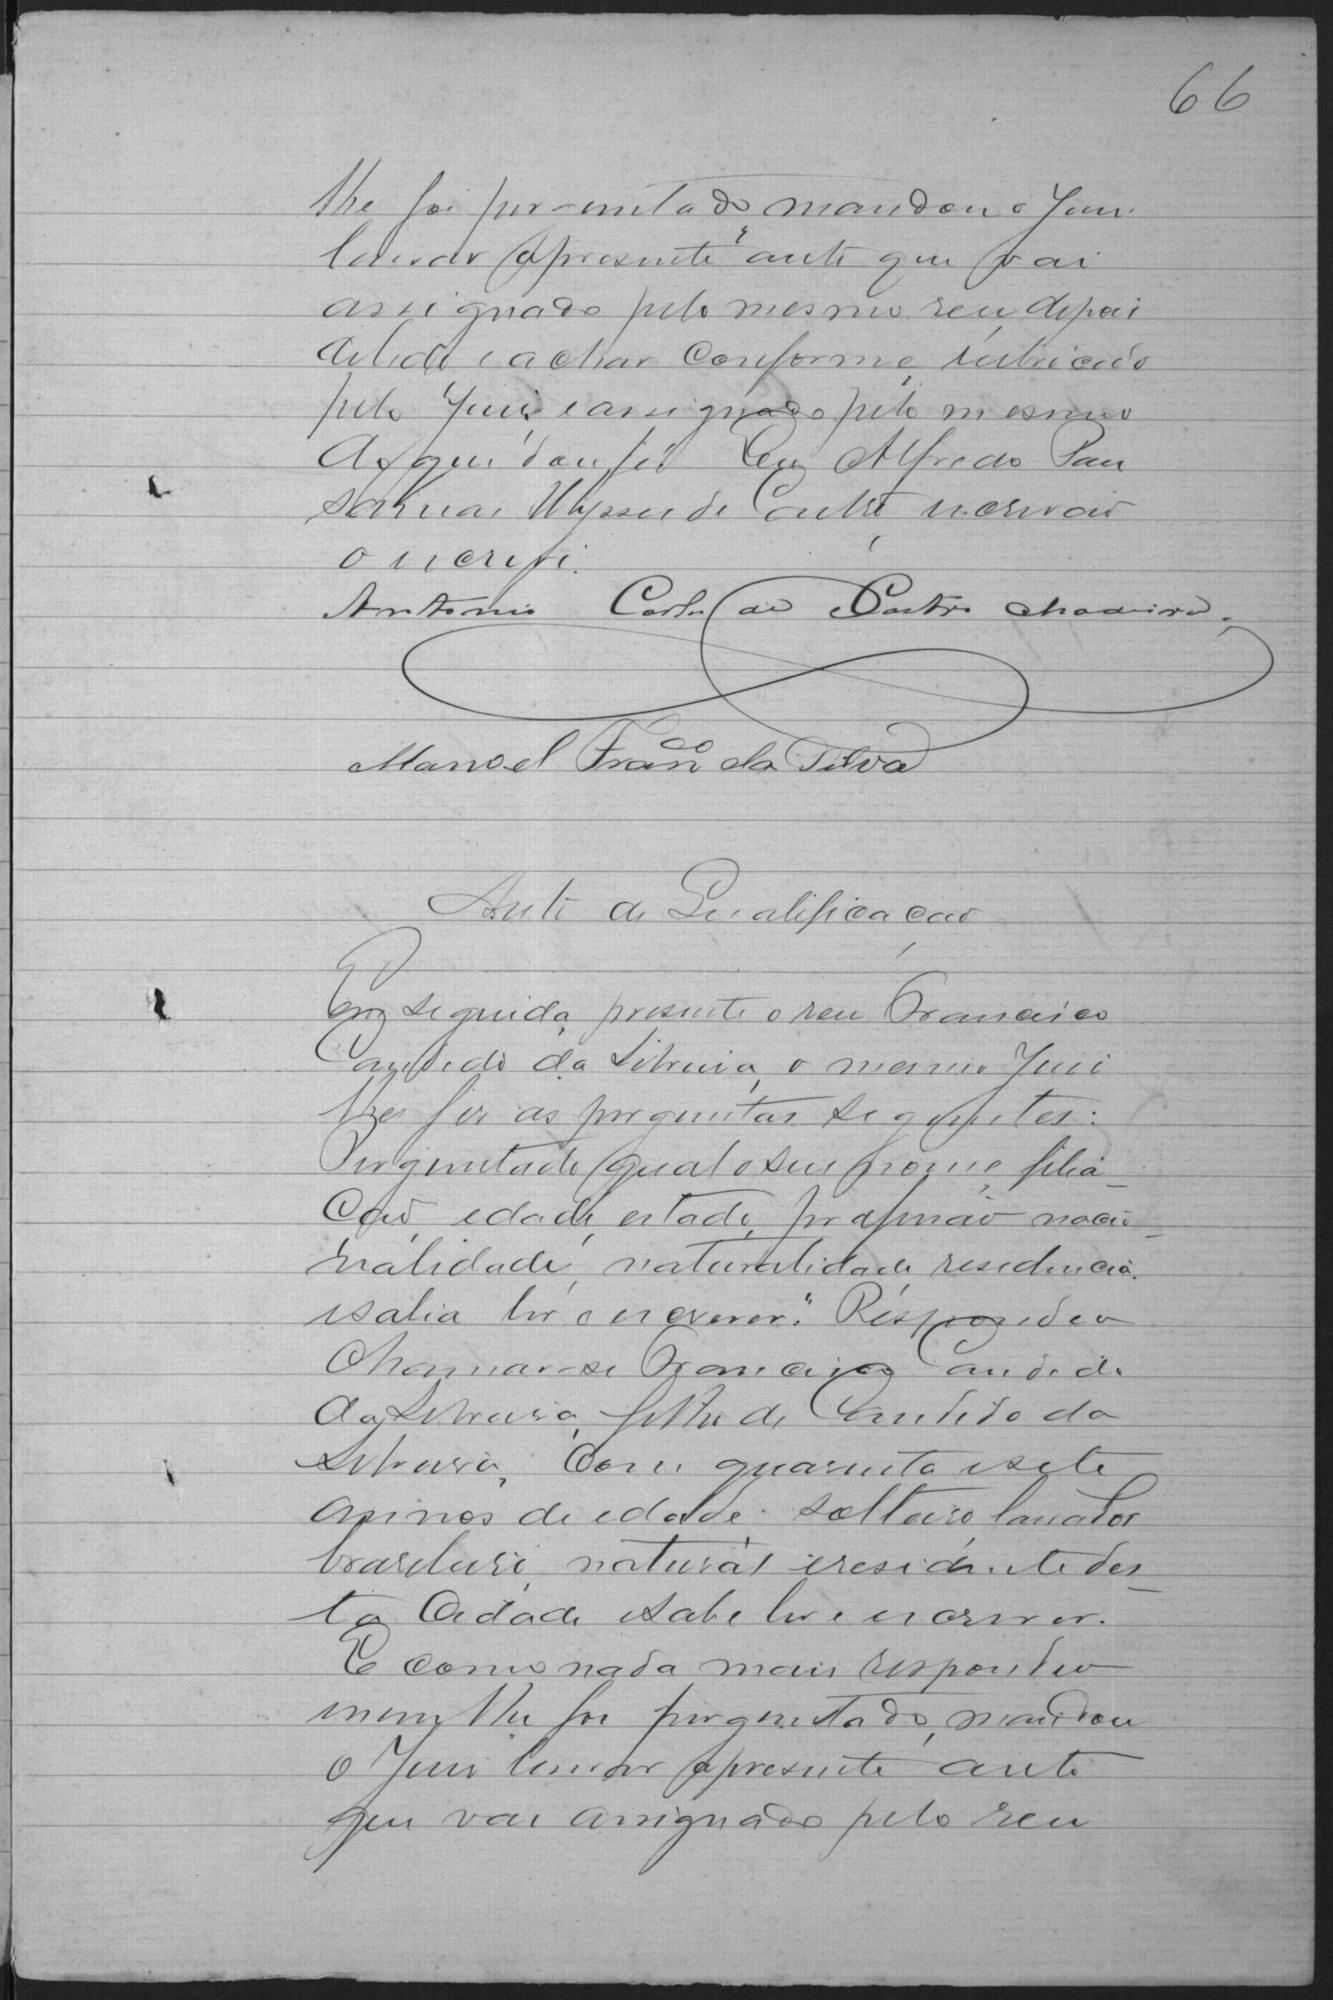 66
lhe foi perguntado mandou o Juiz
lavrar o presente auto que vai
assignado pelo mesmo reu, depois
de lido e achar conforme, rubricado
pelo Juiz, e assignado pelo mesmo
do que dou fé. Eu Alfredo
Ulysses de Castro escrivão
o escrevi.
Antonio Carlos de Castro Madeira.
Manoel Franco da Silva
Auto de Qualificação
Em seguida, presente o reu Francisco
Candido da Silveira, o mesmo Juiz
lhe fez as perguntas seguintes:
Perguntado qual o seu nome, filia-
ção, edade, estado, profissão nacio-
nalidade, naturalidade, residencia
e sabia ler e escrever? Respondeu
chamar-se Francisco Candido
da Silveira, filho de Candido da
Silveira, com quarenta e sete
annos de edade solteiro, lavrador
brasileiro, natural e residente des-
ta cidade e sabe ler e escrever.
E como nada mais respondeu
nem lhe foi perguntado, mandou
o Juiz lavrar o presente auto
que vai assignado pelo reu